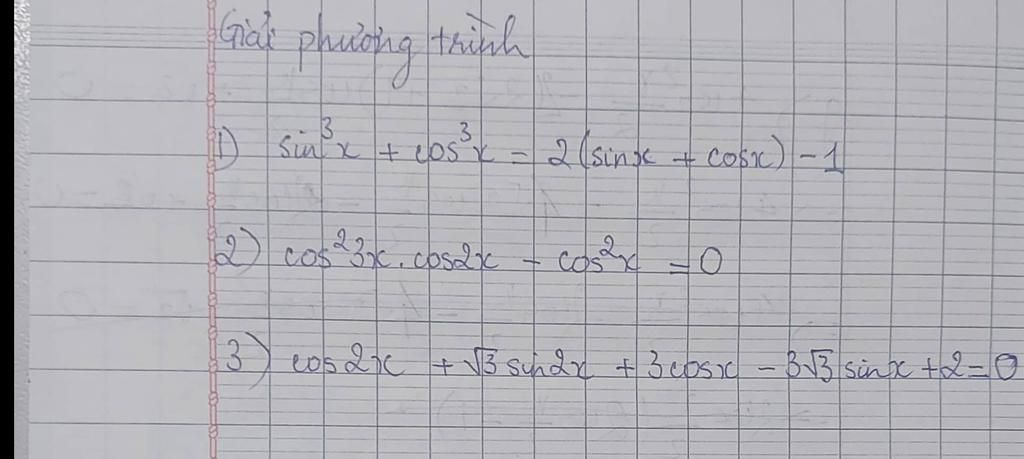 Giải phương trình
1) sin³x + cos³x = 2(sinx + cosx) - 1
2) cos²3x.cos2x - cos²x = 0
3) cos2x + √3 sin2x + 3cosx - 3√3 sinx + 2 = 0